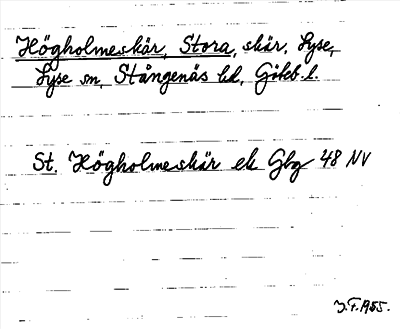 Högholmeskär, Stora, skär, Lyse,
Lyse sn, Stångenäs hd, Göteb. l.
St. Högholmeskär ek Gbg 48 NV
J.F. 1955.